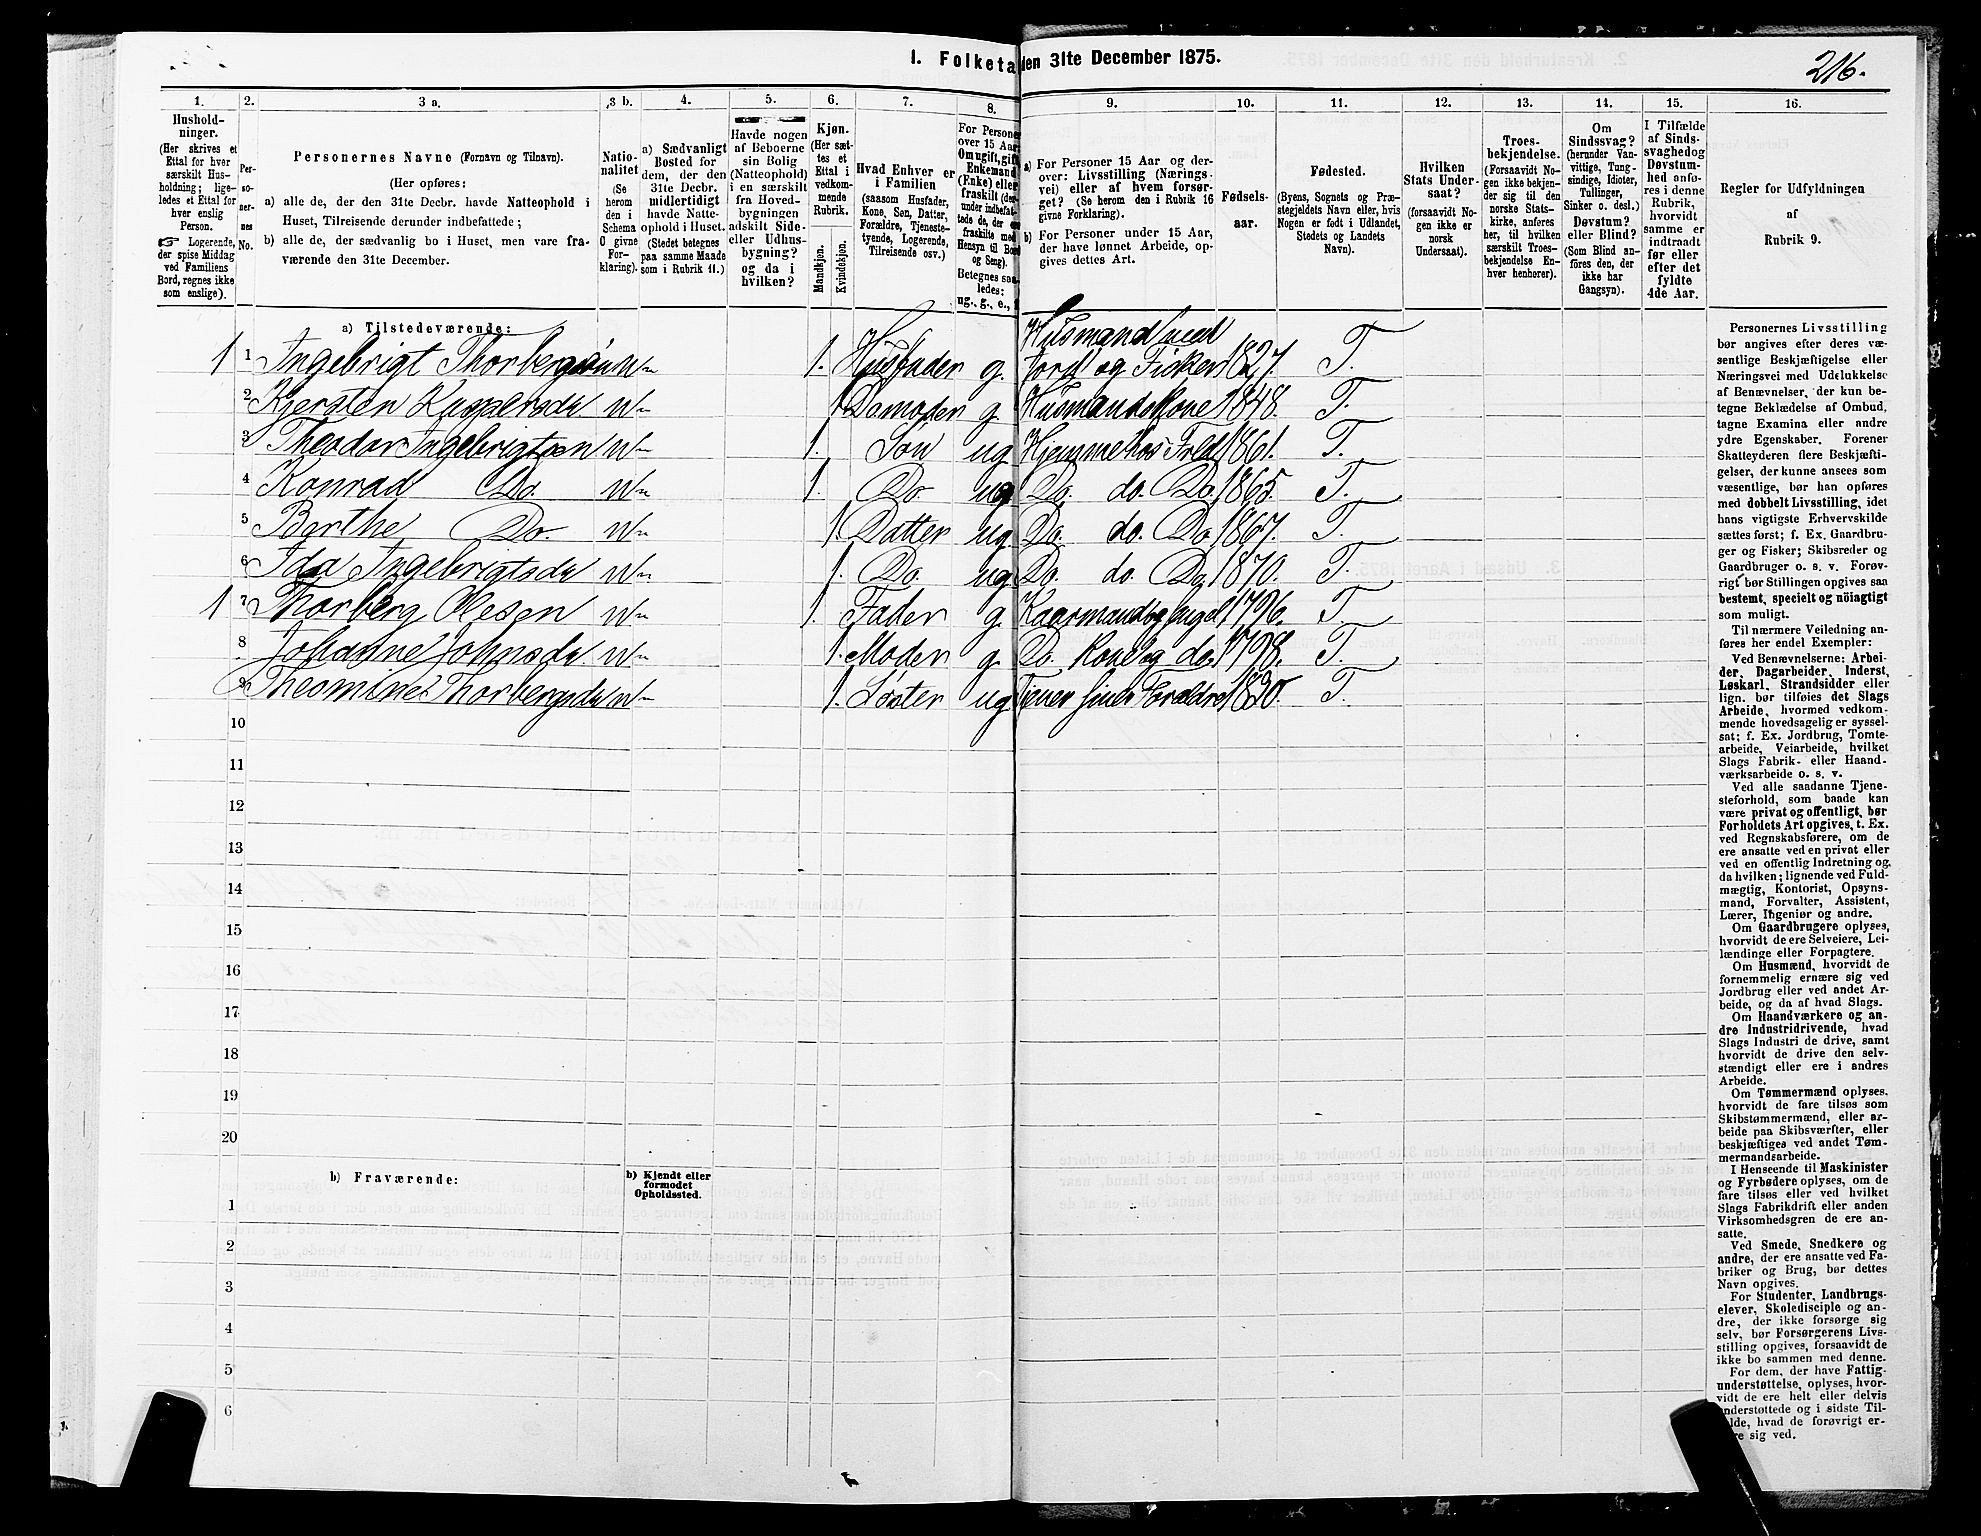 I. Folketa
den 31te December 1875.
216.
1.
2.
3 a.
3 b.
4.
5.
6.
7.
8.
9.
10.
11.
12.
13.
14.
15.
16.
Hushold-
ninger.
(Her skrives et
Ettal for hver
særskilt Hus-
holdning; lige-
ledes et Ettal for
hver enslig
Person.
☞ Logerende,
der spise Middag
ved Familiens
Bord, regnes ikke
som enslige).
Per-
so-
ner-
nes
No.
Personernes Navne (Fornavn og Tilnavn).
(Her opføres:
a) alle de, der den 31te Decbr. havde Natteophold i
Huset, Tilreisende derunder indbefattede;
b) alle de, der sædvanlig bo i Huset, men vare fra-
værende den 31te December.
Natio-
nalitet
(Se
herom
den i
Schema
O givne
For-
klaring).
a) Sædvanligt
Bosted for
dem, der den
31te Decbr.
midlertidigt
havde Natte-
ophold i Huset.
(Stedet betegnes
paa samme Maade
som i Rubrik 11.)
Havde nogen
af Beboerne
sin Bolig
(Natteophold)
i en særskilt
fra Hoved-
bygningen
adskilt Side-
eller Udhus-
bygning?
og da i
hvilken?
Kjøn.
(Her sæt-
tes et
Ettal i
vedkom-
mende
Rubrik.
Mandkjøn.
Kvindekjøn.
Hvad Enhver er
i Familien
(saasom Husfader,
Kone, Søn, Datter,
Forældre, Tjeneste-
tyende, Logerende,
Tilreisende osv.)
For Persone
over 15 Aar
Om ugift, gift
Enkemand
(Enke) eller
fraskilt
Hensyn til Bord
og Seng).
Betegnes saa-
ledes:
ug., g., e.,
a) For Personer 15 Aar og der-
over: Livsstilling (Nærings-
vei) eller af hvem forsør-
get? (Se herom den i Rubrik 16
givne Forklaring).
b) For Personer under 15 Aar,
der have lønnet Arbeide, op-
gives dettes Art.
Fødsels-
aar.
Fødested.
(Byens, Sognets og Præ-
stegjeldets Navn eller, hvis
Nogen er født i Udlandet,
Stedets og Landets
Navn).
Hvilken
Stats Under-
saat?
(forsaavidt No-
gen ikke er
norsk
Undersaat).
Troes-
bekjendelse.
(Forsaavidt No-
gen ikke bekjen-
der sig til den
norske Stats-
kirke, anføres
her, til hvilken
særskilt Troes-
bekjendelse En-
hver henhører).
Om
Sindssvag?
(herunder Van-
vittige, Tung-
sindige, Idioter,
Tullinger,
Sinker o. desl.)
Døvstum?
eller Blind?
(Som Blind an-
føres den, der
ikke har
Gangsyn).
I Tilfælde
af Sinds-
svaghed og
Døvstum-
hed anfø-
res i denne
Rubrik,
hvorvidt
samme er
indtraadt
før eller
efter det
fyldte
4de Aar.
Regler for Udfyldningen
af
Rubrik 9.
a) Tilstedeværende:
1 1 Ingebrigt Thorbergsen n 1. Husfader g. Husmand med Jord og Fisker 1827 T.
2 Kjersten Kaspersdr n 1 Domoder g. Husmandskone 1848. T.
3 Theodor Ingebrigtsen n 1. Søn ug Hjemme hos Fred 1861. T.
4 Konrad Do. n 1. Do ug Do. do. Do. 1865. T.
5 Berthe Do. n 1. Datter ug. Do. do. Do 1867. T.
6 Ida Ingebrigtsdr n 1. Do. ug Do. do. Do 1870. T.
1 7 Thorberg Olesen n 1. Fader g. 1796. T.
8 Johanne Johnsdr n 1. Moder g. Do. Kone og do. 1798. T.
9 Thorbergsdr n 1. Søster ug Tjener sine Forældre 1830. T.
10
11
12
13
14
15
16
17
18
19
20
b) Fraværende:
b) Kjendt eller
formodet
Opholdssted.
1
2
3
4
5
6
Personernes Livsstilling
bør angives efter deres væ-
sentlige Beskjæftigelse eller
Næringsvei med Udelukkelse
af Benævnelser, der kun be-
tegne Beklædelse af Ombud,
tagne Examina eller andre
ydre Egenskaber. Forener
Skatteyderen flere Beskjæfti-
gelser, der kunne ansees som
væsentlige, bør han opføres
med dobbelt Livsstilling, idet
hans vigtigste Erhvervskilde
sættes først; f. Ex. Gaardbru-
ger og Fisker; Skibsreder og
Gaardbruger o. s. v. Forøv-
rigt bør Stillingen opgives saa
bestemt, specielt og nöiagtigt
som muligt.
Til nærmere Veiledning an-
føres her endel Exempler:
Ved Benævnelserne: Arbei-
der, Dagarbeider, Inderst,
Løskarl, Strandsidder eller
lign. bør tilføies det Slags
Arbeide, hvormed vedkom-
mende hovedsagelig er syssel-
sat; f. Ex. Jordbrug, Tomte-
arbeide, Veiarbeide, hvilket
Slags Fabrik- eller Haand-
værksarbeide o. s. v.
Ved alle saadanne Tjene-
steforhold, som baade kan
være privat og offentligt, bør
Forholdets Art opgives, t. Ex.
ved Regnskabsførere, om de
ere ansatte ved en privat eller
ved en offentlig Indretning og
da hvilken; lignende ved Fuld-
mægtig, Kontorist, Opsyns-
mand, Forvalter, Assistent,
Lærer, Ingeniør og andre.
Om Gaardbrugere oplyses,
hvorvidt de ere Selveiere, Lei-
lændinge eller Forpagtere.
Om Husmænd, hvorvidt de
fornemmelig ernære sig ved
Jordbrug eller ved andet Ar-
beide, og da af hvad Slags.
Om Haandværkere og an-
dre Industridrivende, hvad
Slags Industri de drive, samt
hvorvidt de drive den selv-
stændigt eller ere i andres
Arbeide.
Om Tømmermænd oplyses,
hvorvidt de fare tilsøs som
Skibstømmermænd, eller ar-
beide paa Skibsværfter, eller
beskjæftiges ved andet Tøm-
mermandsarbeide.
I Henseende til Maskinister
og Fyrbødere oplyses, om de
fare tilsøs eller ved hvilket
Slags Fabrikdrift eller anden
Virksomhedsgren de ere an-
satte.
Ved Smede, Snedkere og
andre, der ere ansatte ved Fa-
briker og Brug, bør dettes
Navn opgives.
For Studenter, Landbrugs-
elever, Skoledisciple og an-
dre, der ikke forsørge sig
selv, bør Forsørgerens Livs-
stilling opgives, forsaavidt de
ikke bo sammen med denne.
For dem, der have Fattig-
understøttelse, oplyses, hvor-
vidt de ere helt eller delvis
understøttede og i sidste Til-
hvad de forøvrigt er-
sig ved.